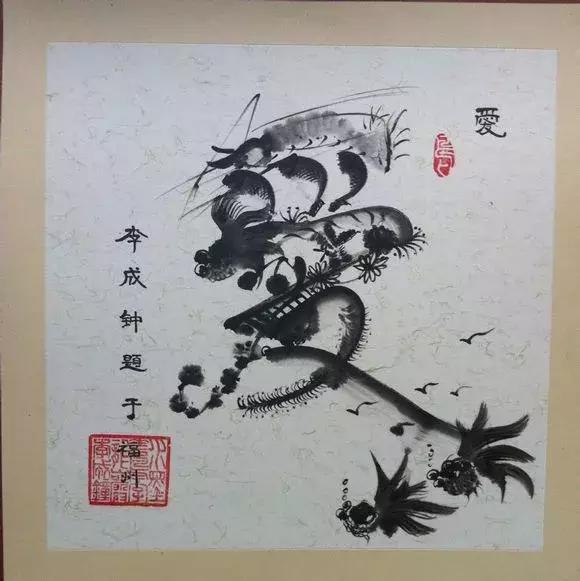 愛
李成钟題于
福州